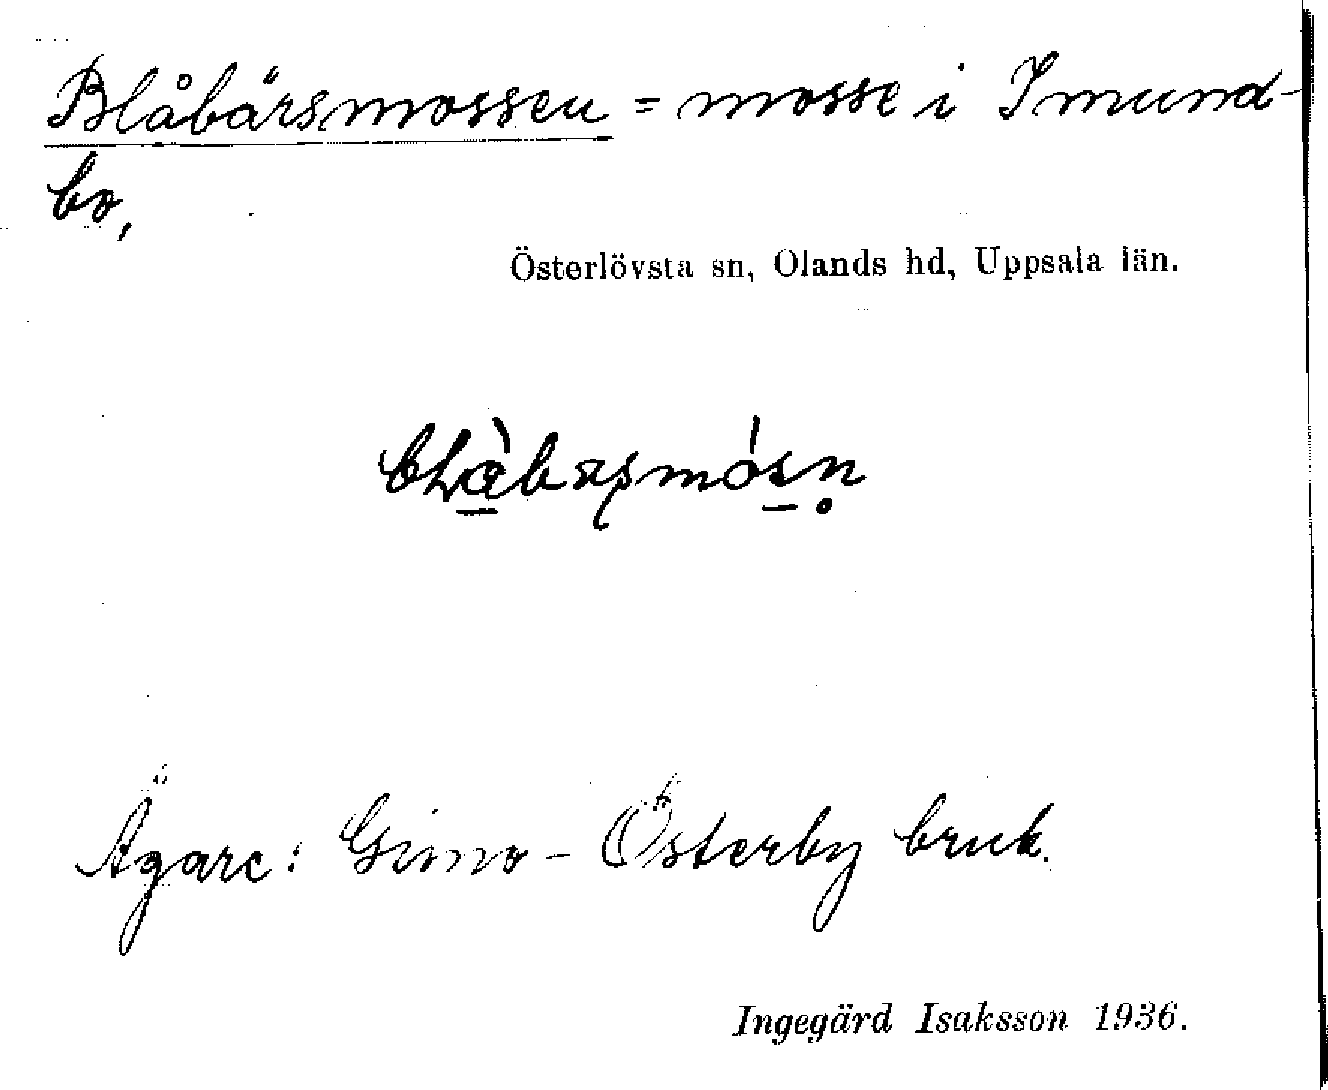 Blåbärsmossen = mosse i Imund-
bo,
Österlövsta sn, Olands hd, Uppsala län.
Ägare: Gimo - Österby bruk.
Ingegärd Isaksson 1936.